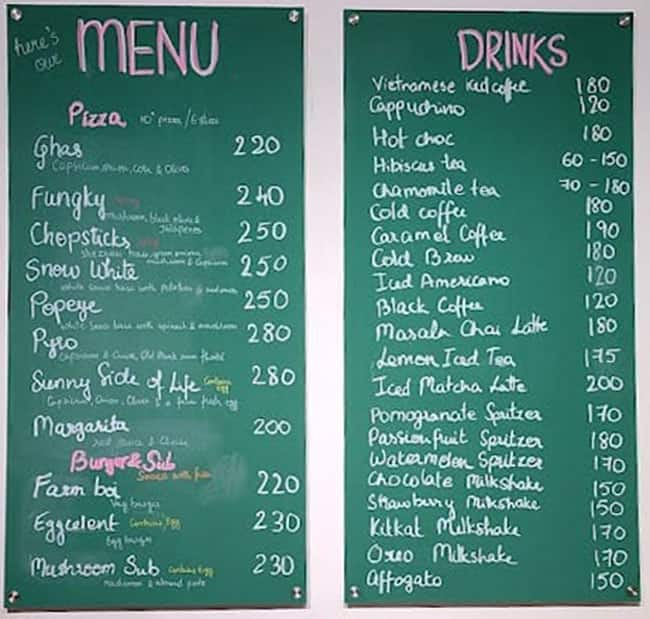 here's our
MENU
Pizza 10" pizza / 6 slices
Ghas 220
Capsicum, onion, corn & Olives
Fungky 240
mushroom, black olives & Jalapenos
Chopsticks 250
mushroom & Capsicum
Snow White 250
white sauce base with potatoes & mushroom
Popeye 250
white sauce base with spinach & mushroom
Pyro 280
Capsicum & Onion, Old Monk rum
Sunny Side of Life Contains Egg 280
Capsicum, Onion, Olives & a fresh egg
Margarita 200
red sauce & Cheese
Burger & Sub
Served with fries
Farm boi 220
Veg burger
Eggcelent Contains Egg 230
Egg burger
Mushroom Sub Contains Egg 230
Mushroom & almond pate
DRINKS
Vietnamese Iced coffee 180
Cappuchino 120
Hot choc 180
Hibiscus tea 60 - 150
Chamomile tea 70 - 180
Cold coffee 180
Caramel Coffee 190
Cold Brew 180
Iced Americano 120
Black Coffee 120
Masala Chai Latte 180
Lemon Iced Tea 175
Iced Matcha Latte 200
Pomogranate Spritzer 170
Passionfruit Spritzer 180
Watermelon Spritzer 170
Chocolate Milkshake 150
Strawburry Milkshake 150
Kitkat Milkshake 170
Oreo Milkshake 170
Affogato 150